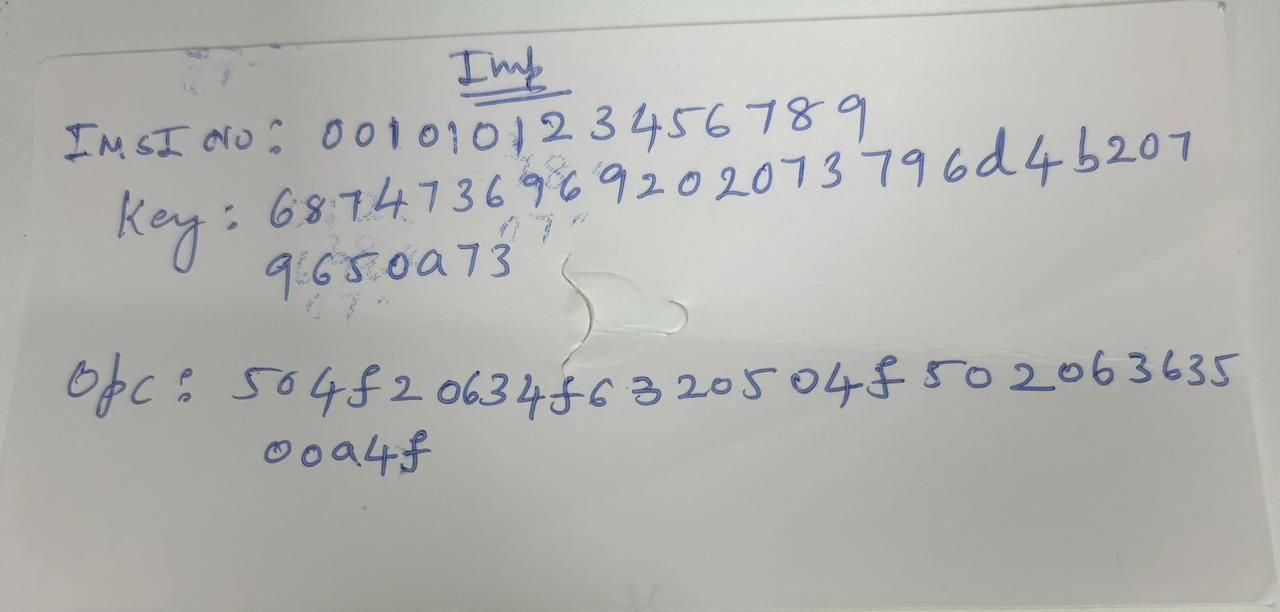 Imp
IMSI NO: 001010123456789
Key: 6874736969202073796d4b207
9650a73
Opc: 504f20634f6320504f502063635
00a4f